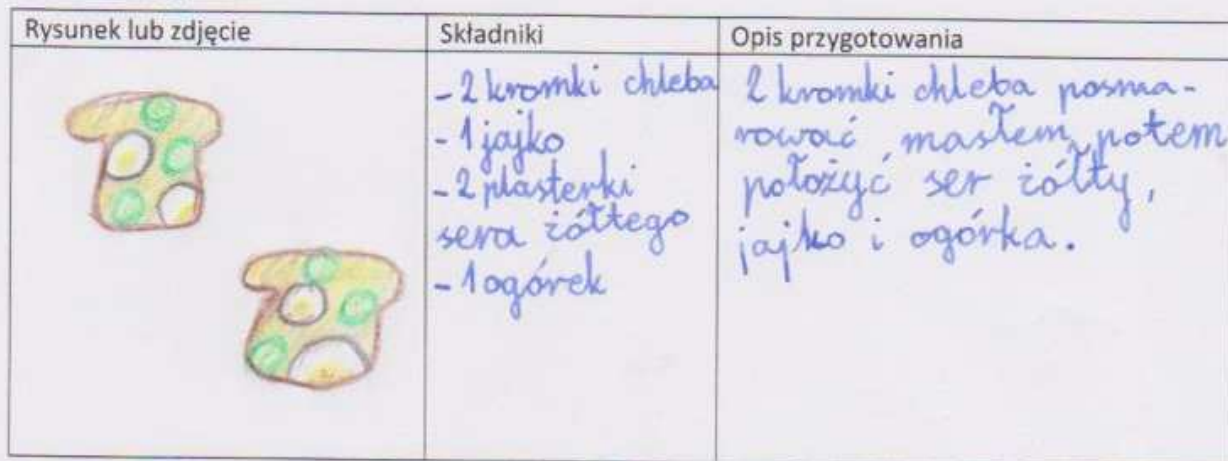 Rysunek lub zdjęcie
Składniki
Opis przygotowania
- 2 kromki chleba
- 1 jajko
- 2 plasterki
sera żółtego
- 1 ogórek
2 kromki chleba posma-
rować masłem, potem
położyć ser żółty,
jajko i ogórka.